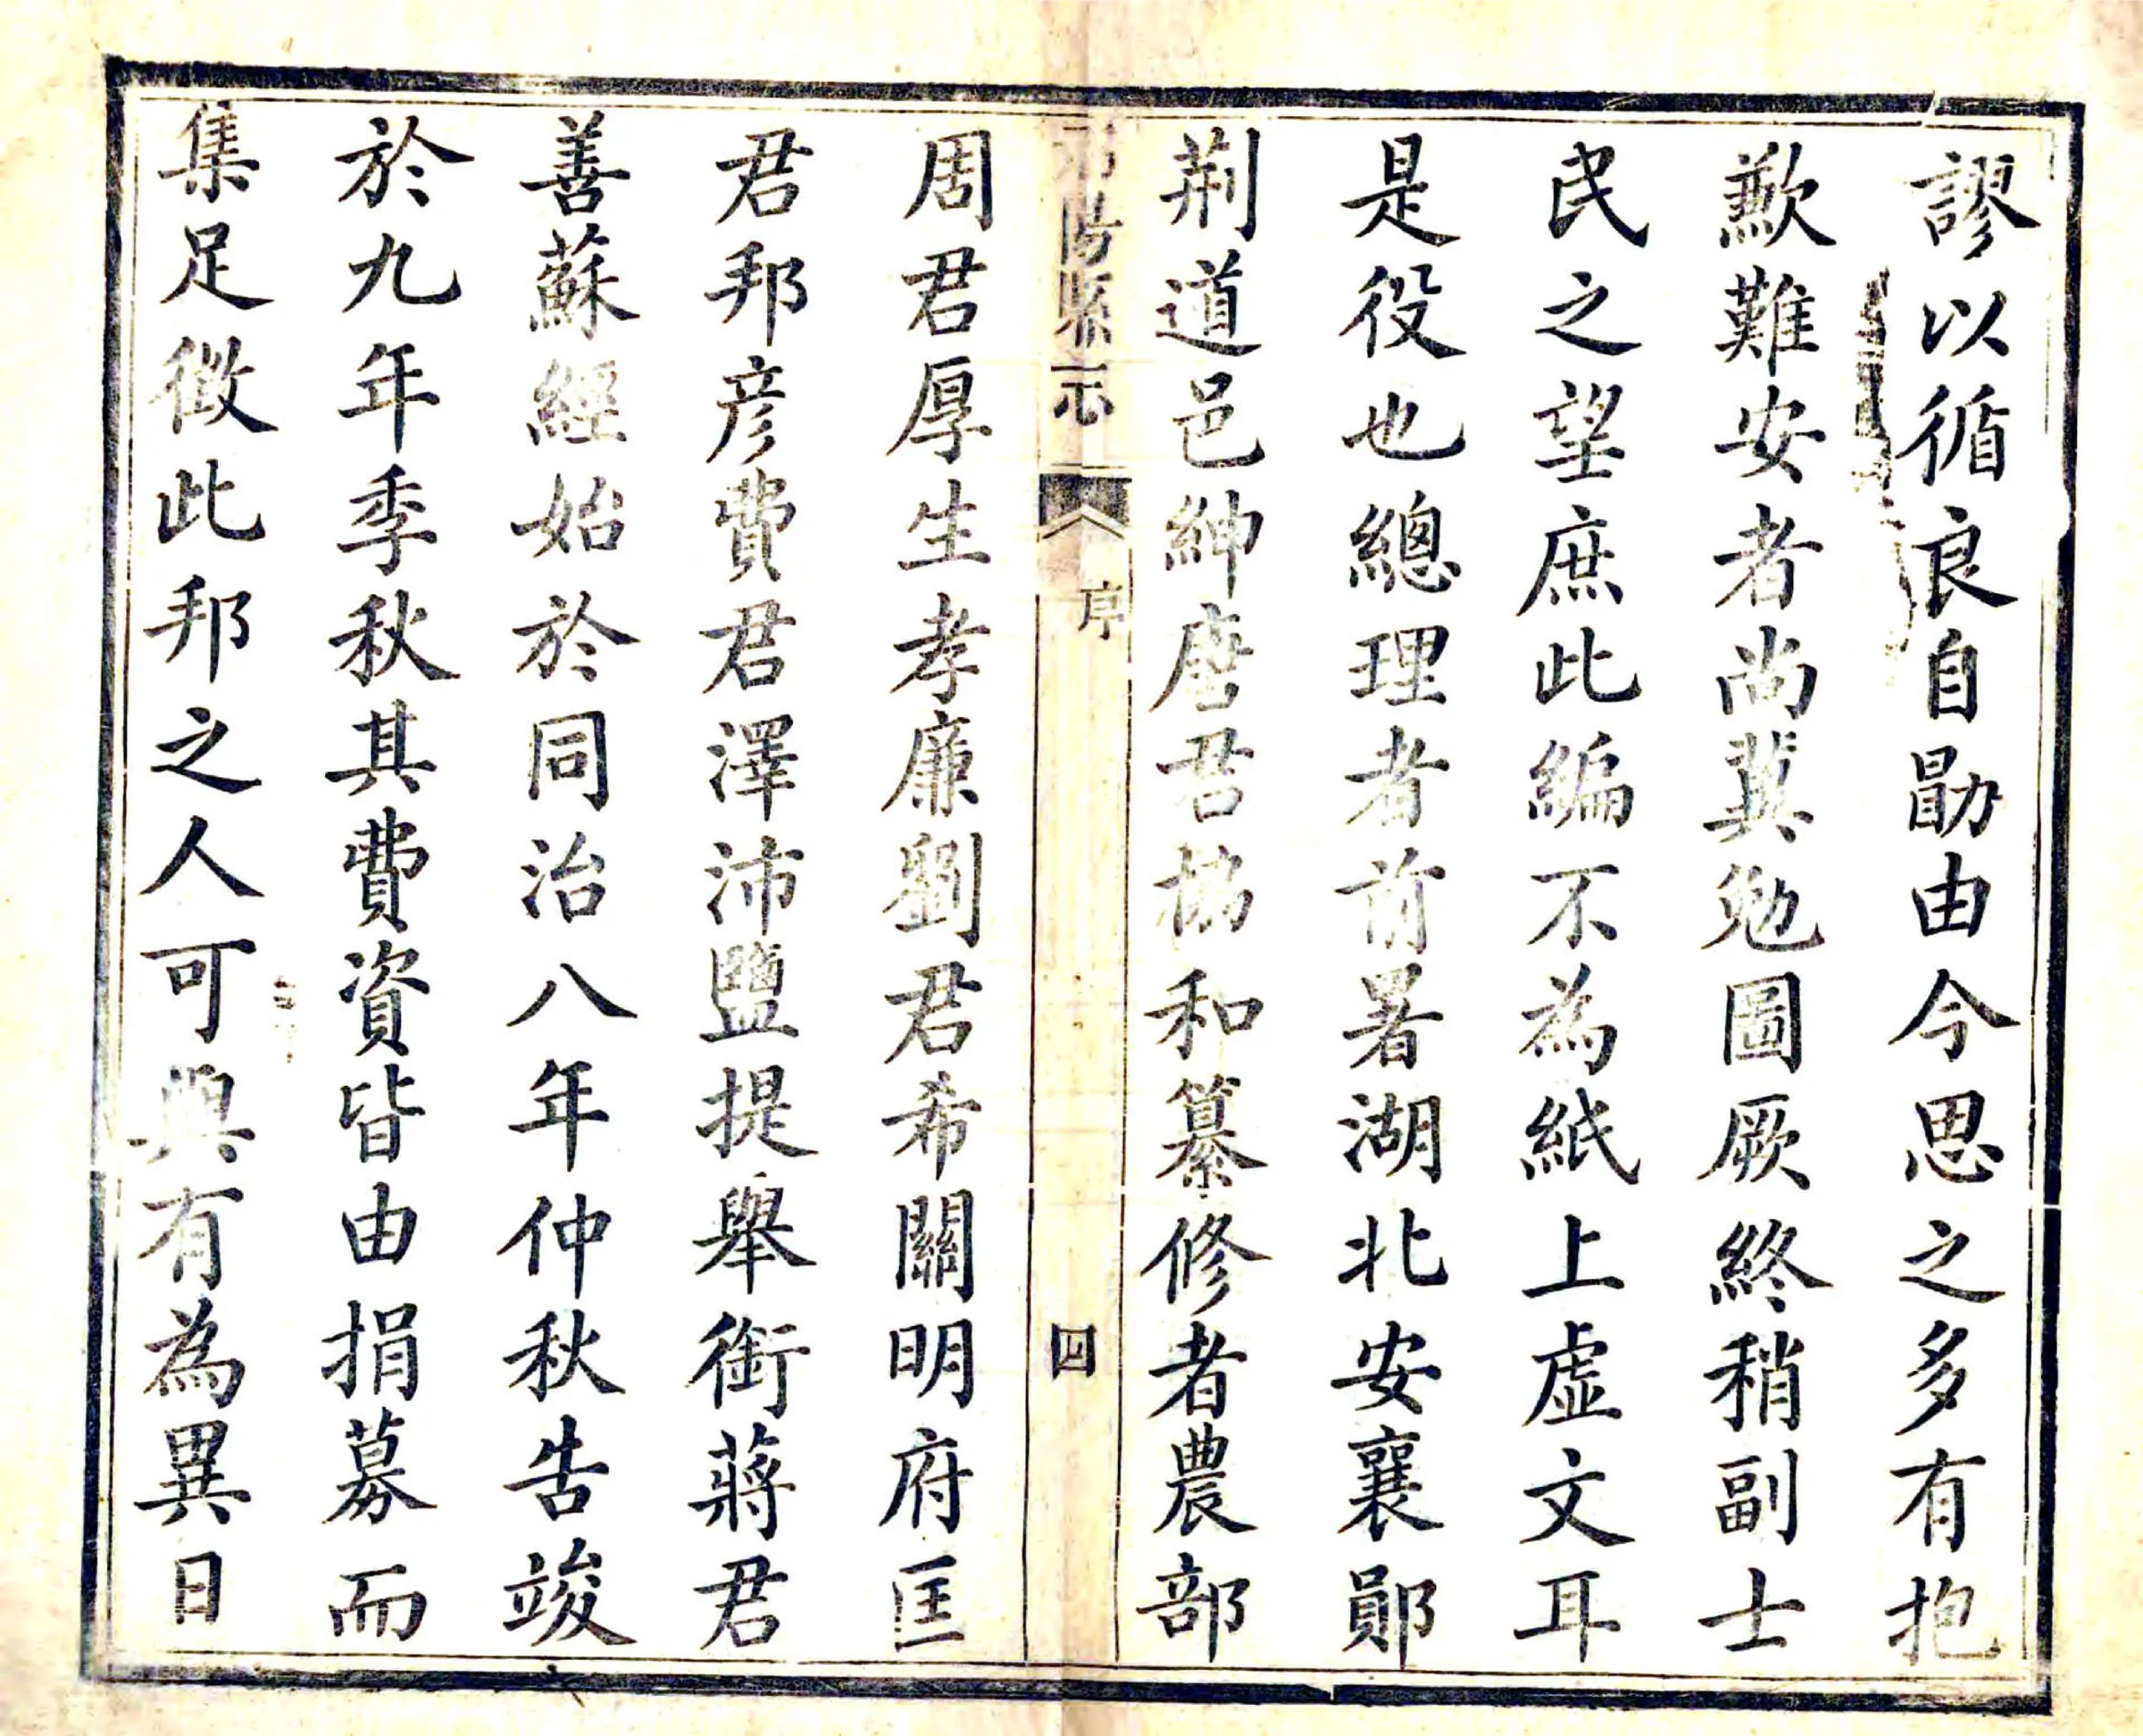 謬以循良自勖由今思之多有抱
歉難安者尚冀勉圖厥終稍副士
民之望庶此編不為紙上虛文耳
是役也總理者前署湖北安襄鄖
荊道邑紳唐君協和纂修者農部
陽縣志
序
四
周君厚生孝廉劉君希關明府匡
君邦彥費君澤沛鹽提舉銜蔣君
善蘇經始於同治八年仲秋告竣
於九年季秋其費資皆由捐募而
集足徵此邦之人可與有為異日